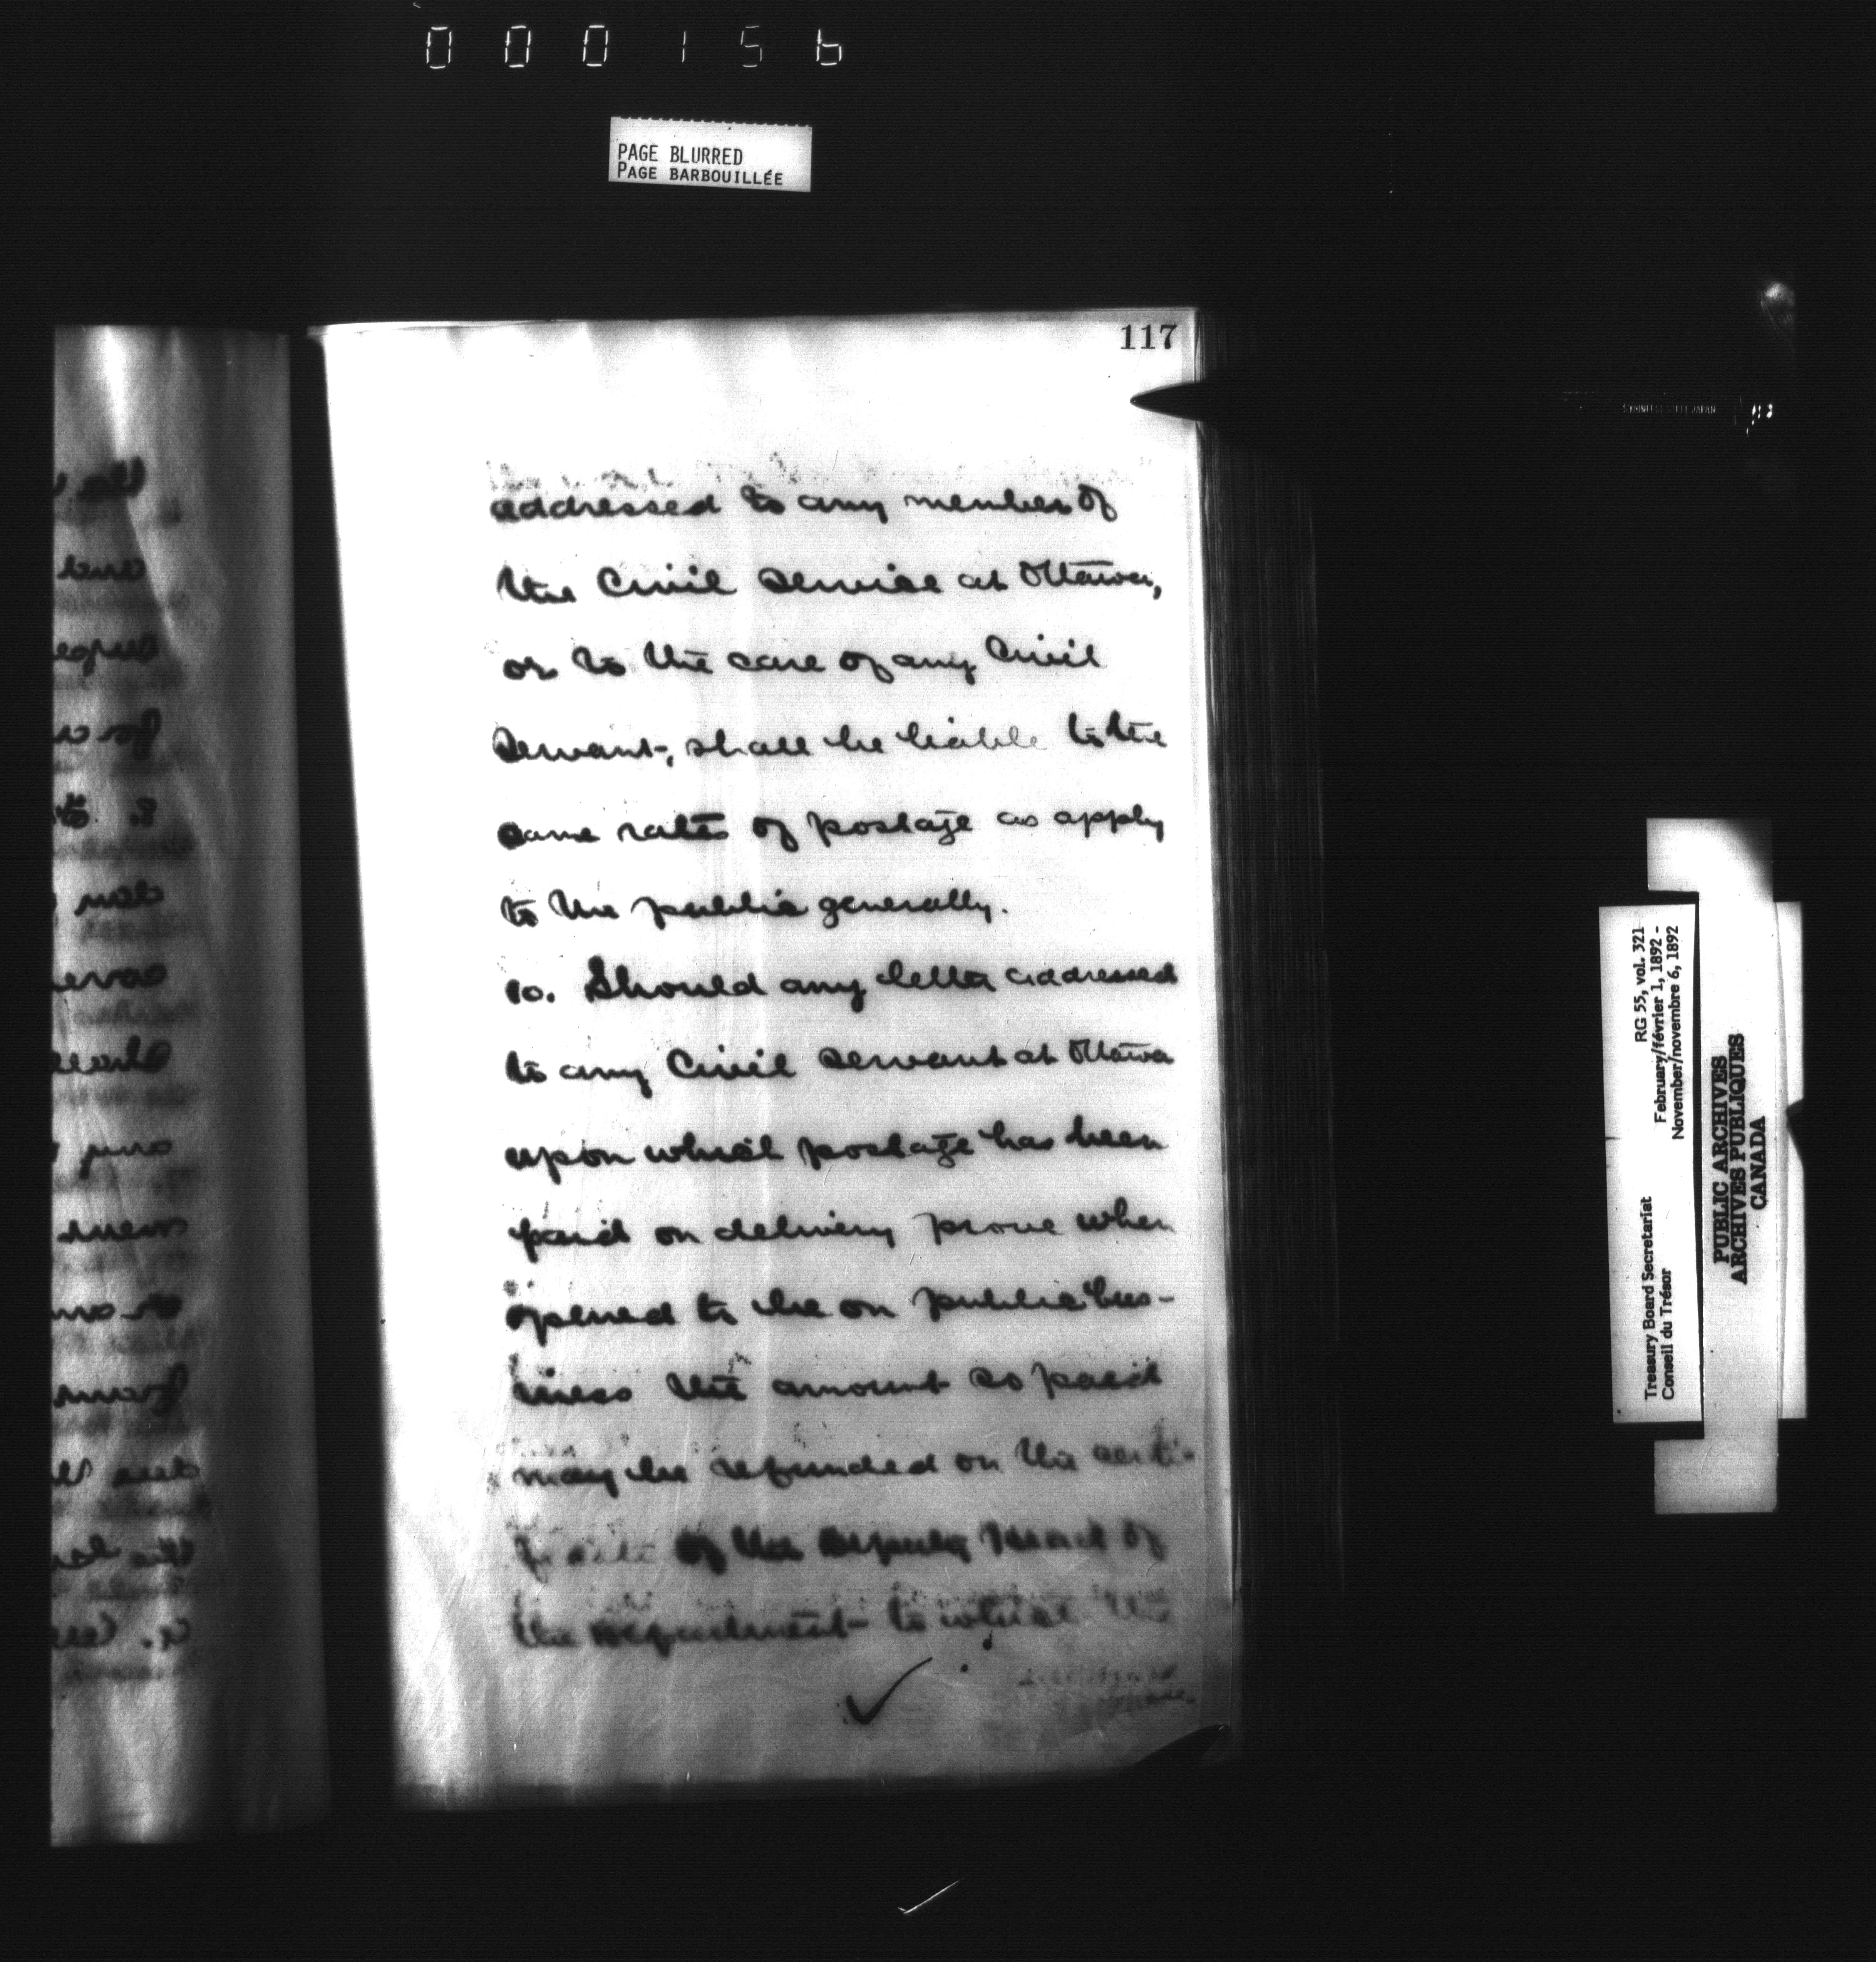 000156
PAGE BLURRED
PAGE BARBOUILLÉE
117
addressed to any member of
the Civil Service at Ottawa,
or to the care of any Civil
Servant, shall be liable to the
same rates of postage as apply
to the public generally.
10. Should any letter addressed
to any Civil Servant at Ottawa
upon which postage has been
paid on delivery prove when
opened to be on public bus-
iness the amount so paid
may be refunded on the certi-
ficate of the Deputy Head of
the Department to which the
RG 55, vol. 321
February/février 1, 1892 -
November/novembre 6, 1892
Treasury Board Secretariat
Conseil du Trésor
PUBLIC ARCHIVES
ARCHIVES PUBLIQUES
CANADA